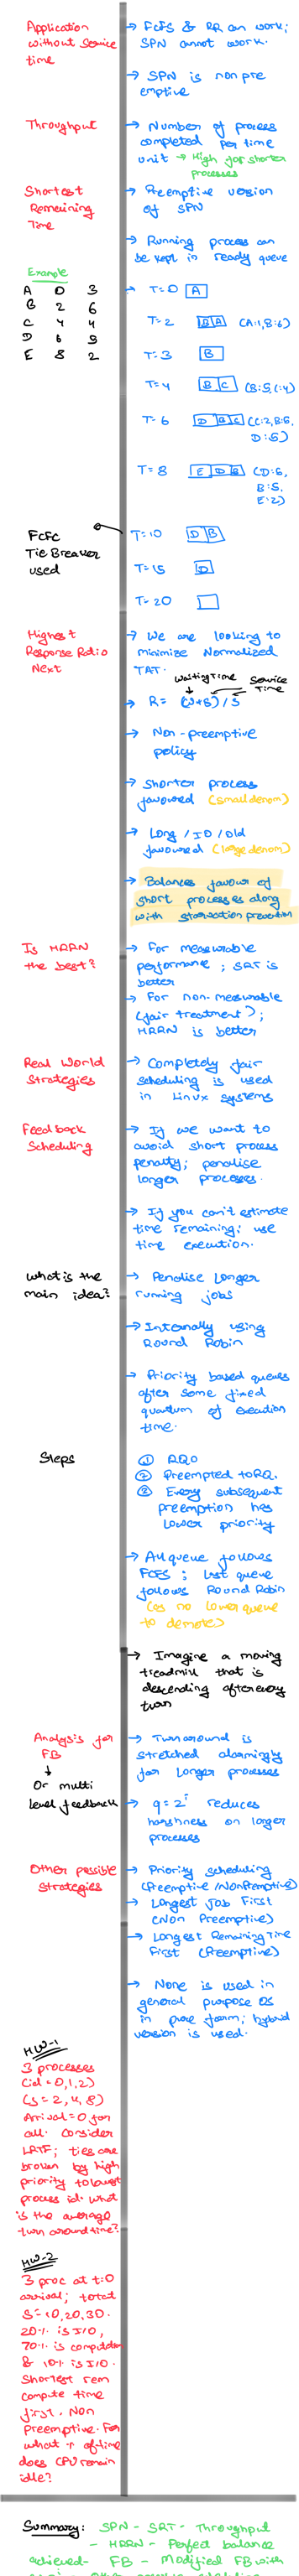 Application
without Service
time
→ FCFS & RR can work;
SPN cannot work.
→ SPN is non pre
emptive
Throughput
→ Number of process
completed per time
unit → High for shorter
processes
Shortest
Remaining
Time
→ Preemptive version
of SPN
→ Running process can
be kept in ready queue
Example
A 0 3
B 2 6
C 4 4
D 6 5
E 8 2
→ T=0 A
T=2 B A (A:1, B:6)
T=3 B
T=4 B C (B:5, C:4)
T=6 D B C (C:2, B:5,
D:5)
T=8 E D B (D:5,
B:5,
E:2)
FCFC
Tie Breaker
used
T=10 D B
T=15 D
T=20
Highest
Response Ratio
Next
→ We are looking to
minimize Normalized
TAT.
Waiting Time Service Time
→ R = (W+S)/S
→ Non-preemptive
policy
→ Shorter process
favoured (small denom)
→ Long / IO / old
favoured (large denom)
→ Balances favour of
short processes along
with starvation prevention
Is HRRN
the best?
→ For measurable
performance; SRT is
better
→ For non-measurable
(fair treatment);
HRRN is better
Real World
Strategies
→ Completely fair
scheduling is used
in Linux systems
Feedback
Scheduling
→ If we want to
avoid short process
penalty; penalise
longer processes.
→ If you can't estimate
time remaining; use
time execution.
What is the
main idea?
→ Penalise longer
running jobs
→ Internally using
Round Robin
→ Priority based queues
after some fixed
quantum of execution
time.
Steps
① RQ0
② Preempted to RQ,
② Every subsequent
preemption has
lower priority
→ All queue follows
FCFS; last queue
follows Round Robin
(as no lower queue
to demote)
→ Imagine a moving
treadmill that is
descending after every
turn
Analysis for
FB
↓
Or multi
level feedback
→ Turnaround is
stretched alarmingly
for longer processes
→ q=2ⁱ reduces
harshness on longer
processes
Other possible
Strategies
→ Priority scheduling
(Preemptive/NonPremptive)
→ Longest Job First
(Non Preemptive)
→ Longest Remaining Time
First (Preemptive)
→ None is used in
general purpose OS
in pure form; hybrid
version is used.
HW-1
3 processes
(id = 0,1,2)
(S = 2, 4, 8)
Arrival = 0 for
all. Consider
LRTF; ties are
broken by high
priority to lowest
process id. What
is the average
turn around time?
HW-2
3 proc at t=0
arrival; total
S = 10,20,30.
20% is I/O,
70% is computation
& 10% is I/O.
Shortest rem
compute time
first. Non
Preemptive. For
what % of time
does CPU remain
idle?
Summary: SPN - SRT - Throughput
- HRRN - Perfect balance
achieved - FB - Modified FB with